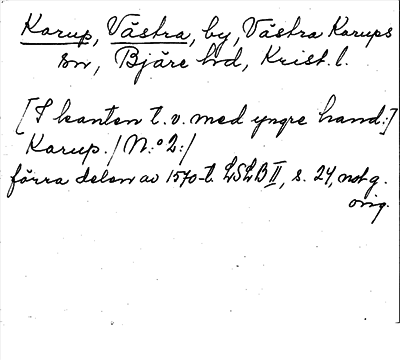 Karup, Västra, by, Västra Karups
sn, Bjäre hd, Krist. l.
[I kanten t. v. med yngre hand:]
Karup. /N:o 2:/
förra delen av 1570-t. LSLB II, s. 24, not g.
orig.